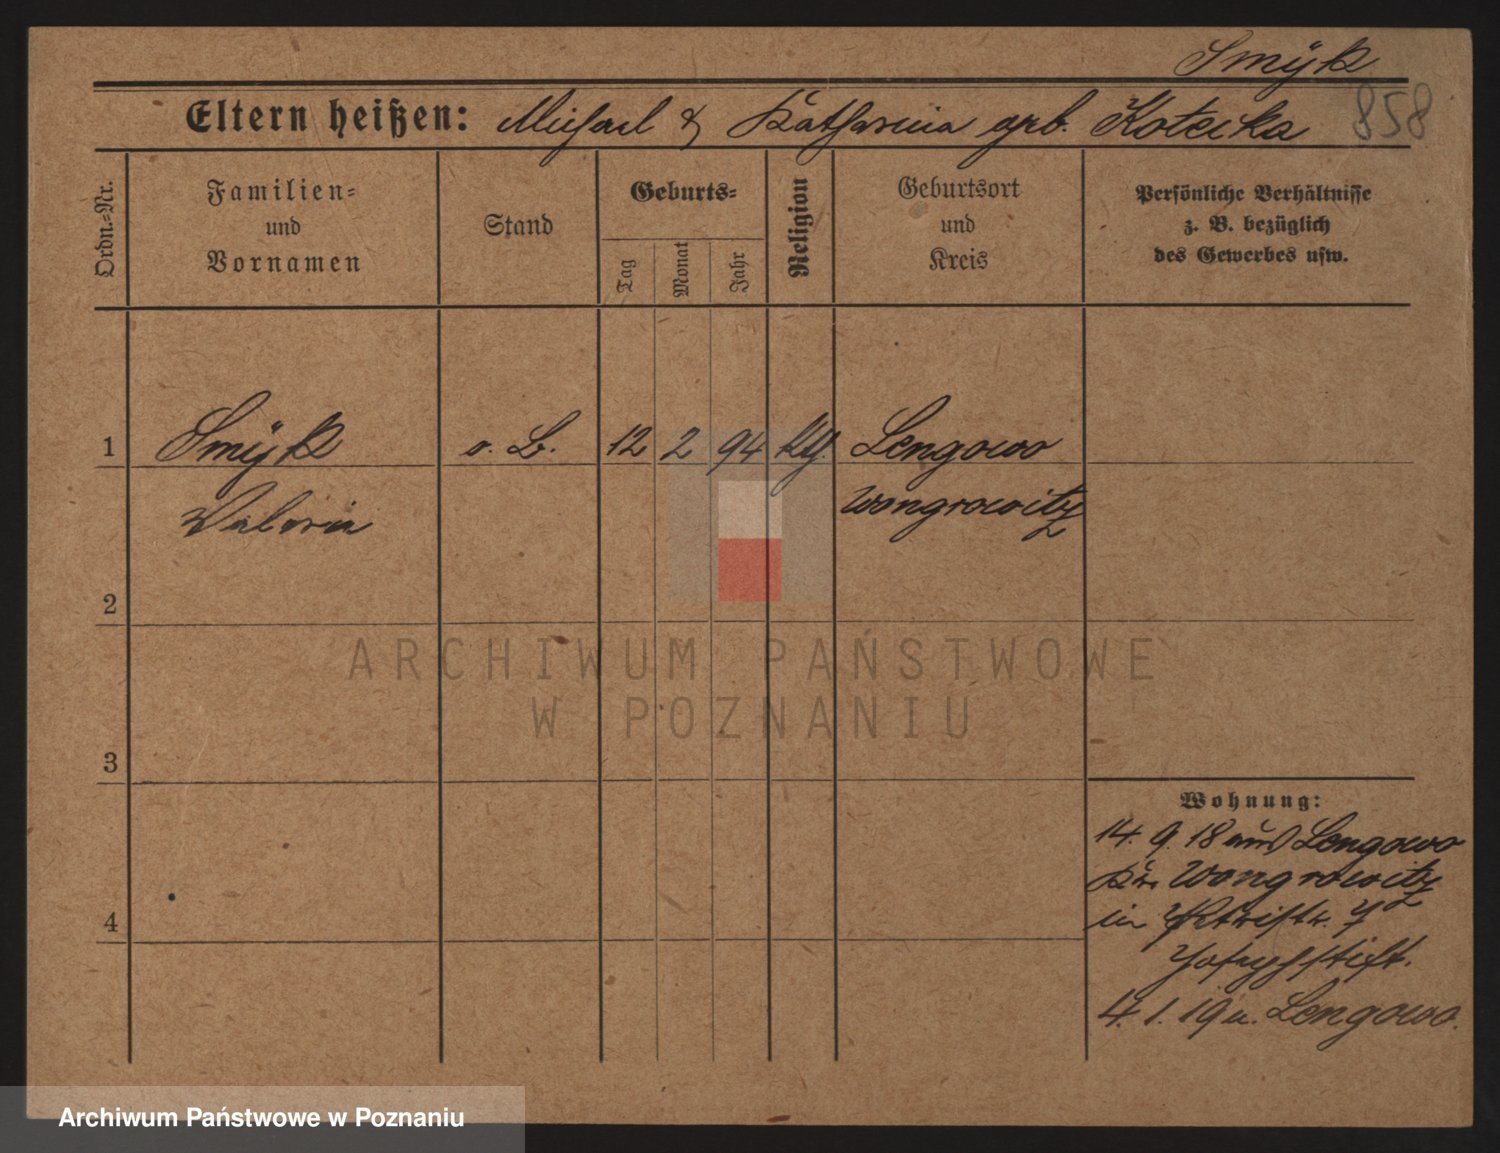 Smÿk
858
Eltern heißen: Michael & Katharina geb. Kotecka
Ordn.-Nr.
Familien-
und
Vornamen
Stand
Geburts-
Tag
Monat
Jahr
Religion
Geburtsort
und
Kreis
Persönliche Verhältnisse
z. B. bezüglich
des Gewerbes usw.
1
Smÿk
o. B.
12
2
94
kth.
Lengowo
Valeria
Wongrowitz
2
3
4
Wohnung:
14. 9. 18 aus Lengowo
Kr. Wongrowitz
in Petristr. 7
Josephstift.
4. 1. 19 n. Lengowo.
ARCHIWUM PAŃSTWOWE
W POZNANIU
Archiwum Państwowe w Poznaniu